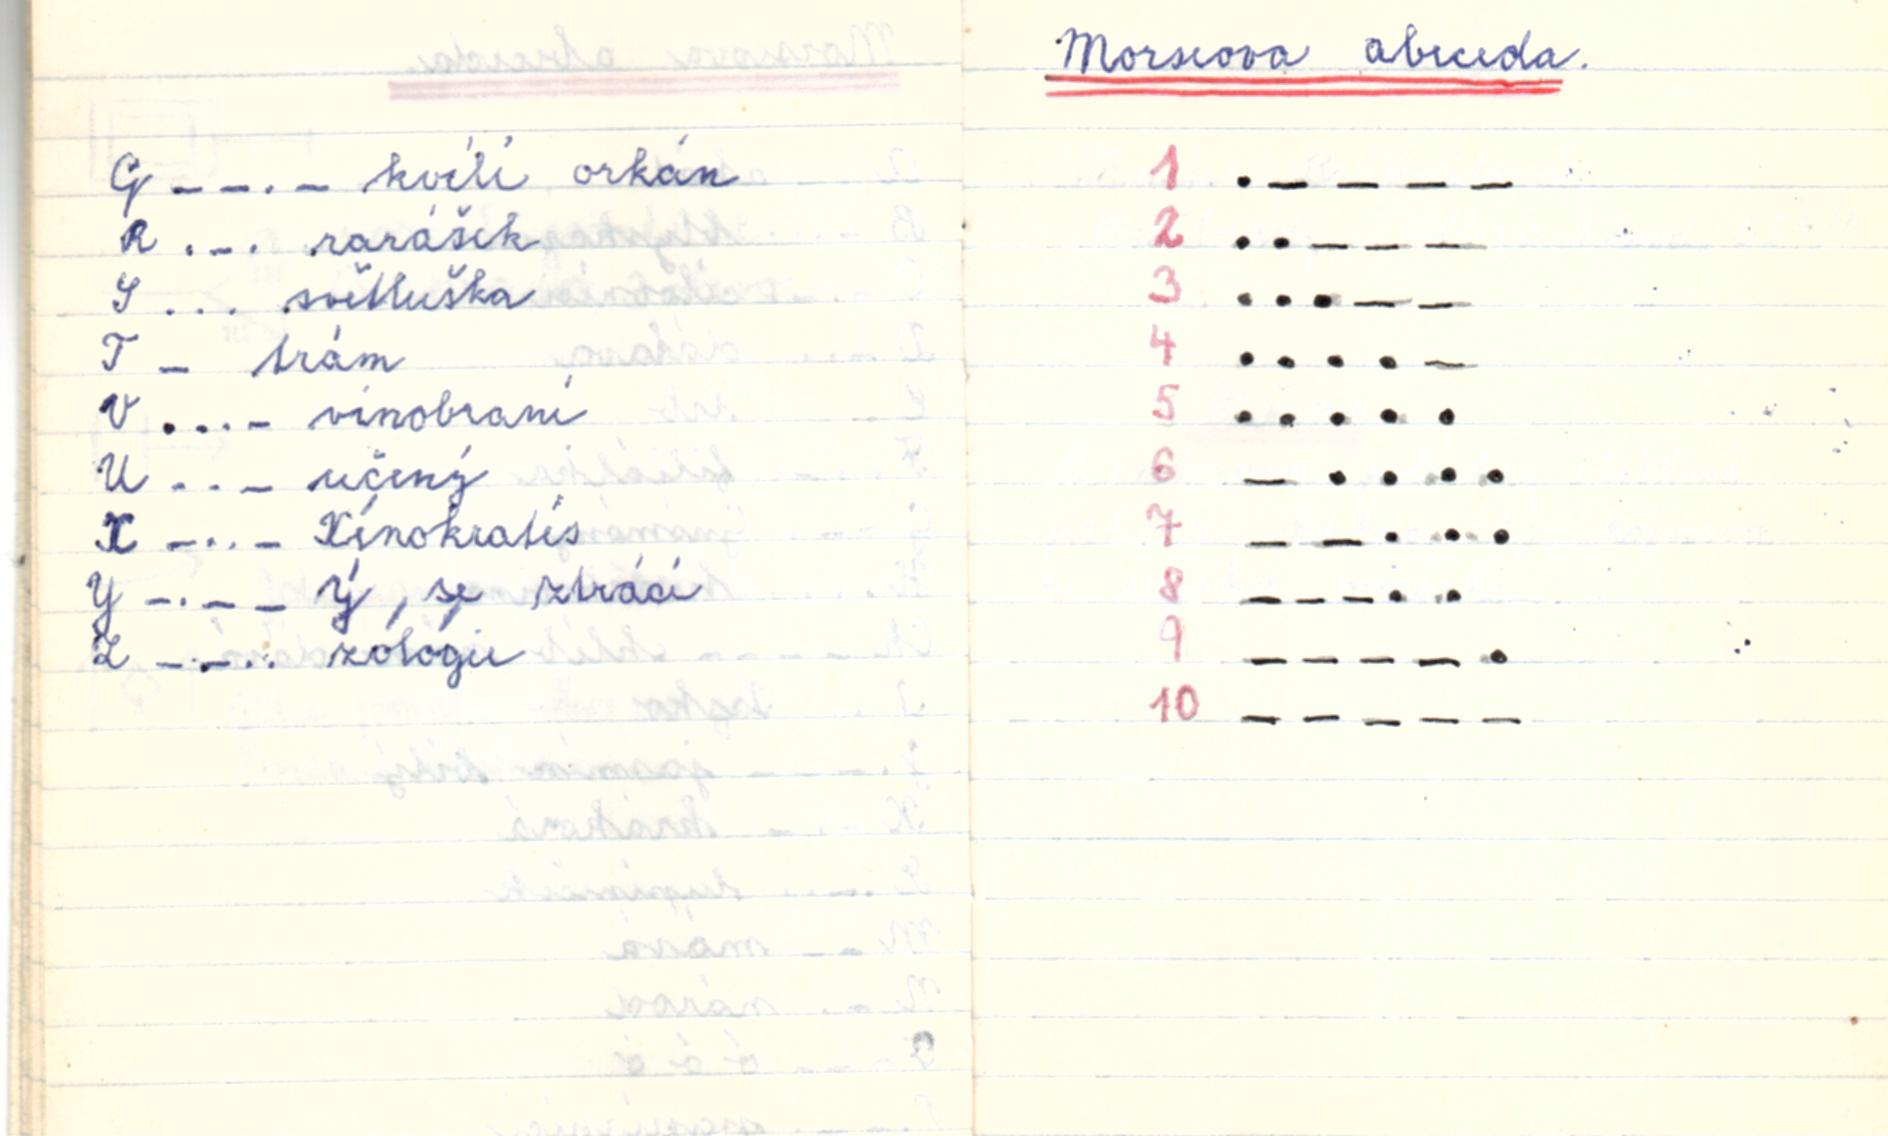 G _ _ . _ kvílí orkán
R . _ . rarášek
S . . . světluška
T _ trám
V . . . _ vinobraní
U . . _ učený
X _ . . _ Xénokratés
Y _ . _ _ Ý, se ztrácí
Z _ _ . . zoologie
Morseova abeceda.
1 . _ _ _ _
2 . . _ _ _
3 . . . _ _
4 . . . . _
5 . . . . .
6 _ . . . .
7 _ _ . . .
8 _ _ _ . .
9 _ _ _ _ .
10 _ _ _ _ _